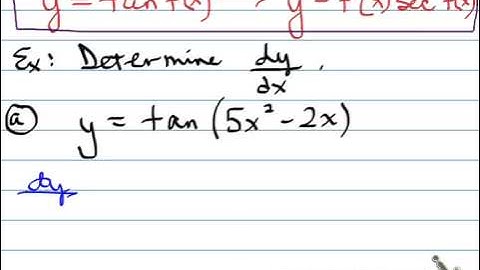 y = tan f(x) → y = f'(x) sec² f(x)
Ex: Determine dy/dx.
(a) y = tan (5x² - 2x)
dy